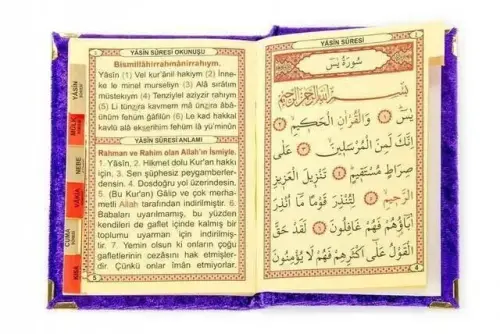 YÂSÎN SÛRESİ OKUNUŞU
Bismillâhirrahmânirrahıym.
Yâsîn (1) Vel kur'ânil hakiym (2) İnne-
ke le minel murseliyn (3) Alâ srâtım
müstekıym (4) Tenziylel aziyzir rahıym
(5) Li tünzira kavmem mâ ünzira âbâ-
ühüm fehüm ğâfilün (6) Le kad hakkal
kavlü alâ ekserihim fehüm lâ yü'minûn
YÂSÎN SÛRESİ ANLAMI
Rahman ve Rahîm olan Allah'ın İsmiyle.
1. Yâsîn, 2. Hikmet dolu Kur'an hakkı
için, 3. Sen şüphesiz peygamberler-
densin. 4. Dosdoğru yol üzerindesin.
5. (Bu Kur'an) Gâlip ve çok merha-
metli Allah tarafından indirilmiştir. 6.
Babaları uyarılmamış, bu yüzden
kendileri de gaflet içinde kalmış bir
toplumu uyarman için indirilmiş-
tir. 7. Yemin olsun ki onların çoğu
gafletlerinin cezasını hak etmişler-
dir. Çünkü onlar îman etmiyorlar.
5
YÂSÎN
MÜLK
NEBE
VÂKIA
CUMA
KISA
YÂSİN SÛRESİ
سُورَةُ يٰسٓ
بِسْمِ اللّٰهِ الرَّحْمٰنِ الرَّحِيمِ
يٰسٓ ۝ وَالْقُرْاٰنِ الْحَكِيمِ ۝
اِنَّكَ لَمِنَ الْمُرْسَلِينَ ۝ عَلٰى
صِرَاطٍ مُسْتَقِيمٍ ۝ تَنْزِيلَ الْعَزِيزِ
الرَّحِيمِ ۝ لِتُنْذِرَ قَوْمًا مَٓا اُنْذِرَ
اٰبَٓاؤُ۬هُمْ فَهُمْ غَافِلُونَ ۝ لَقَدْ حَقَّ
الْقَوْلُ عَلٰٓى اَكْثَرِهِمْ فَهُمْ لَا يُؤْمِنُونَ
4